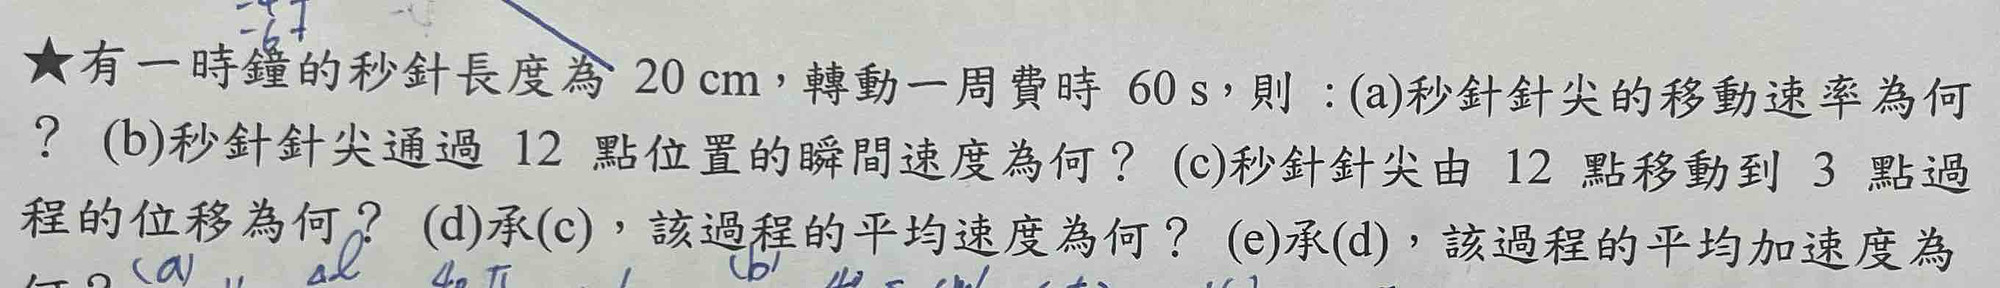 -6t
★有一時鐘的秒針長度為 20 cm，轉動一周費時 60 s，則：(a)秒針針尖的移動速率為何
？ (b)秒針針尖通過 12 點位置的瞬間速度為何？ (c)秒針針尖由 12 點移動到 3 點過
程的位移為何？ (d)承(c)，該過程的平均速度為何？ (e)承(d)，該過程的平均加速度為
(a) Δl 40π (b)